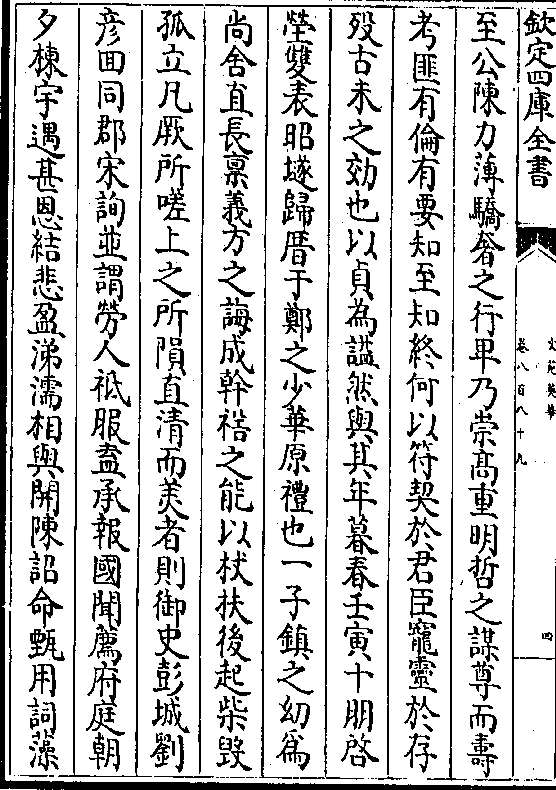 欽定四庫全書
文苑英華
卷八百八十九
四
至公陳力薄驕奢之行卑乃崇髙重明哲之謀尊而壽
考匪有倫有要知至知終何以符契於君臣寵靈於存
殁古未之効也以貞為諡然與其年暮春壬寅十朋啓
塋雙表昭墜歸厝于鄭之少華原禮也一子鎮之幼為
尚舍直長稟義方之誨成幹祮之能以杖扶後起柴毁
孤立凡厥所嗟上之所隕直清而美者則御史彭城劉
彦回同郡宋詢並謂勞人祗服盍承報國聞薦府庭朝
夕棟宇遇甚恩結悲盈涕濡相與開陳詔命甄用詞藻